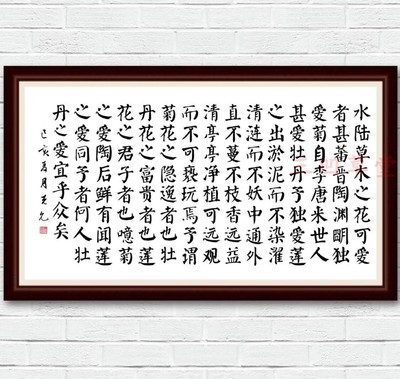 水陆草木之花可爱
者甚蕃晋陶渊明独
爱菊自李唐来世人
甚爱牡丹予独爱莲
之出淤泥而不染濯
清涟而不妖中通外
直不蔓不枝香远益
清亭亭净植可远观
而不可亵玩焉予谓
菊花之隐逸者也牡
丹花之富贵者也莲
花之君子者也噫菊
之爱陶后鲜有闻莲
之爱同予者何人牡
丹之爱宜乎众矣
己亥夏月